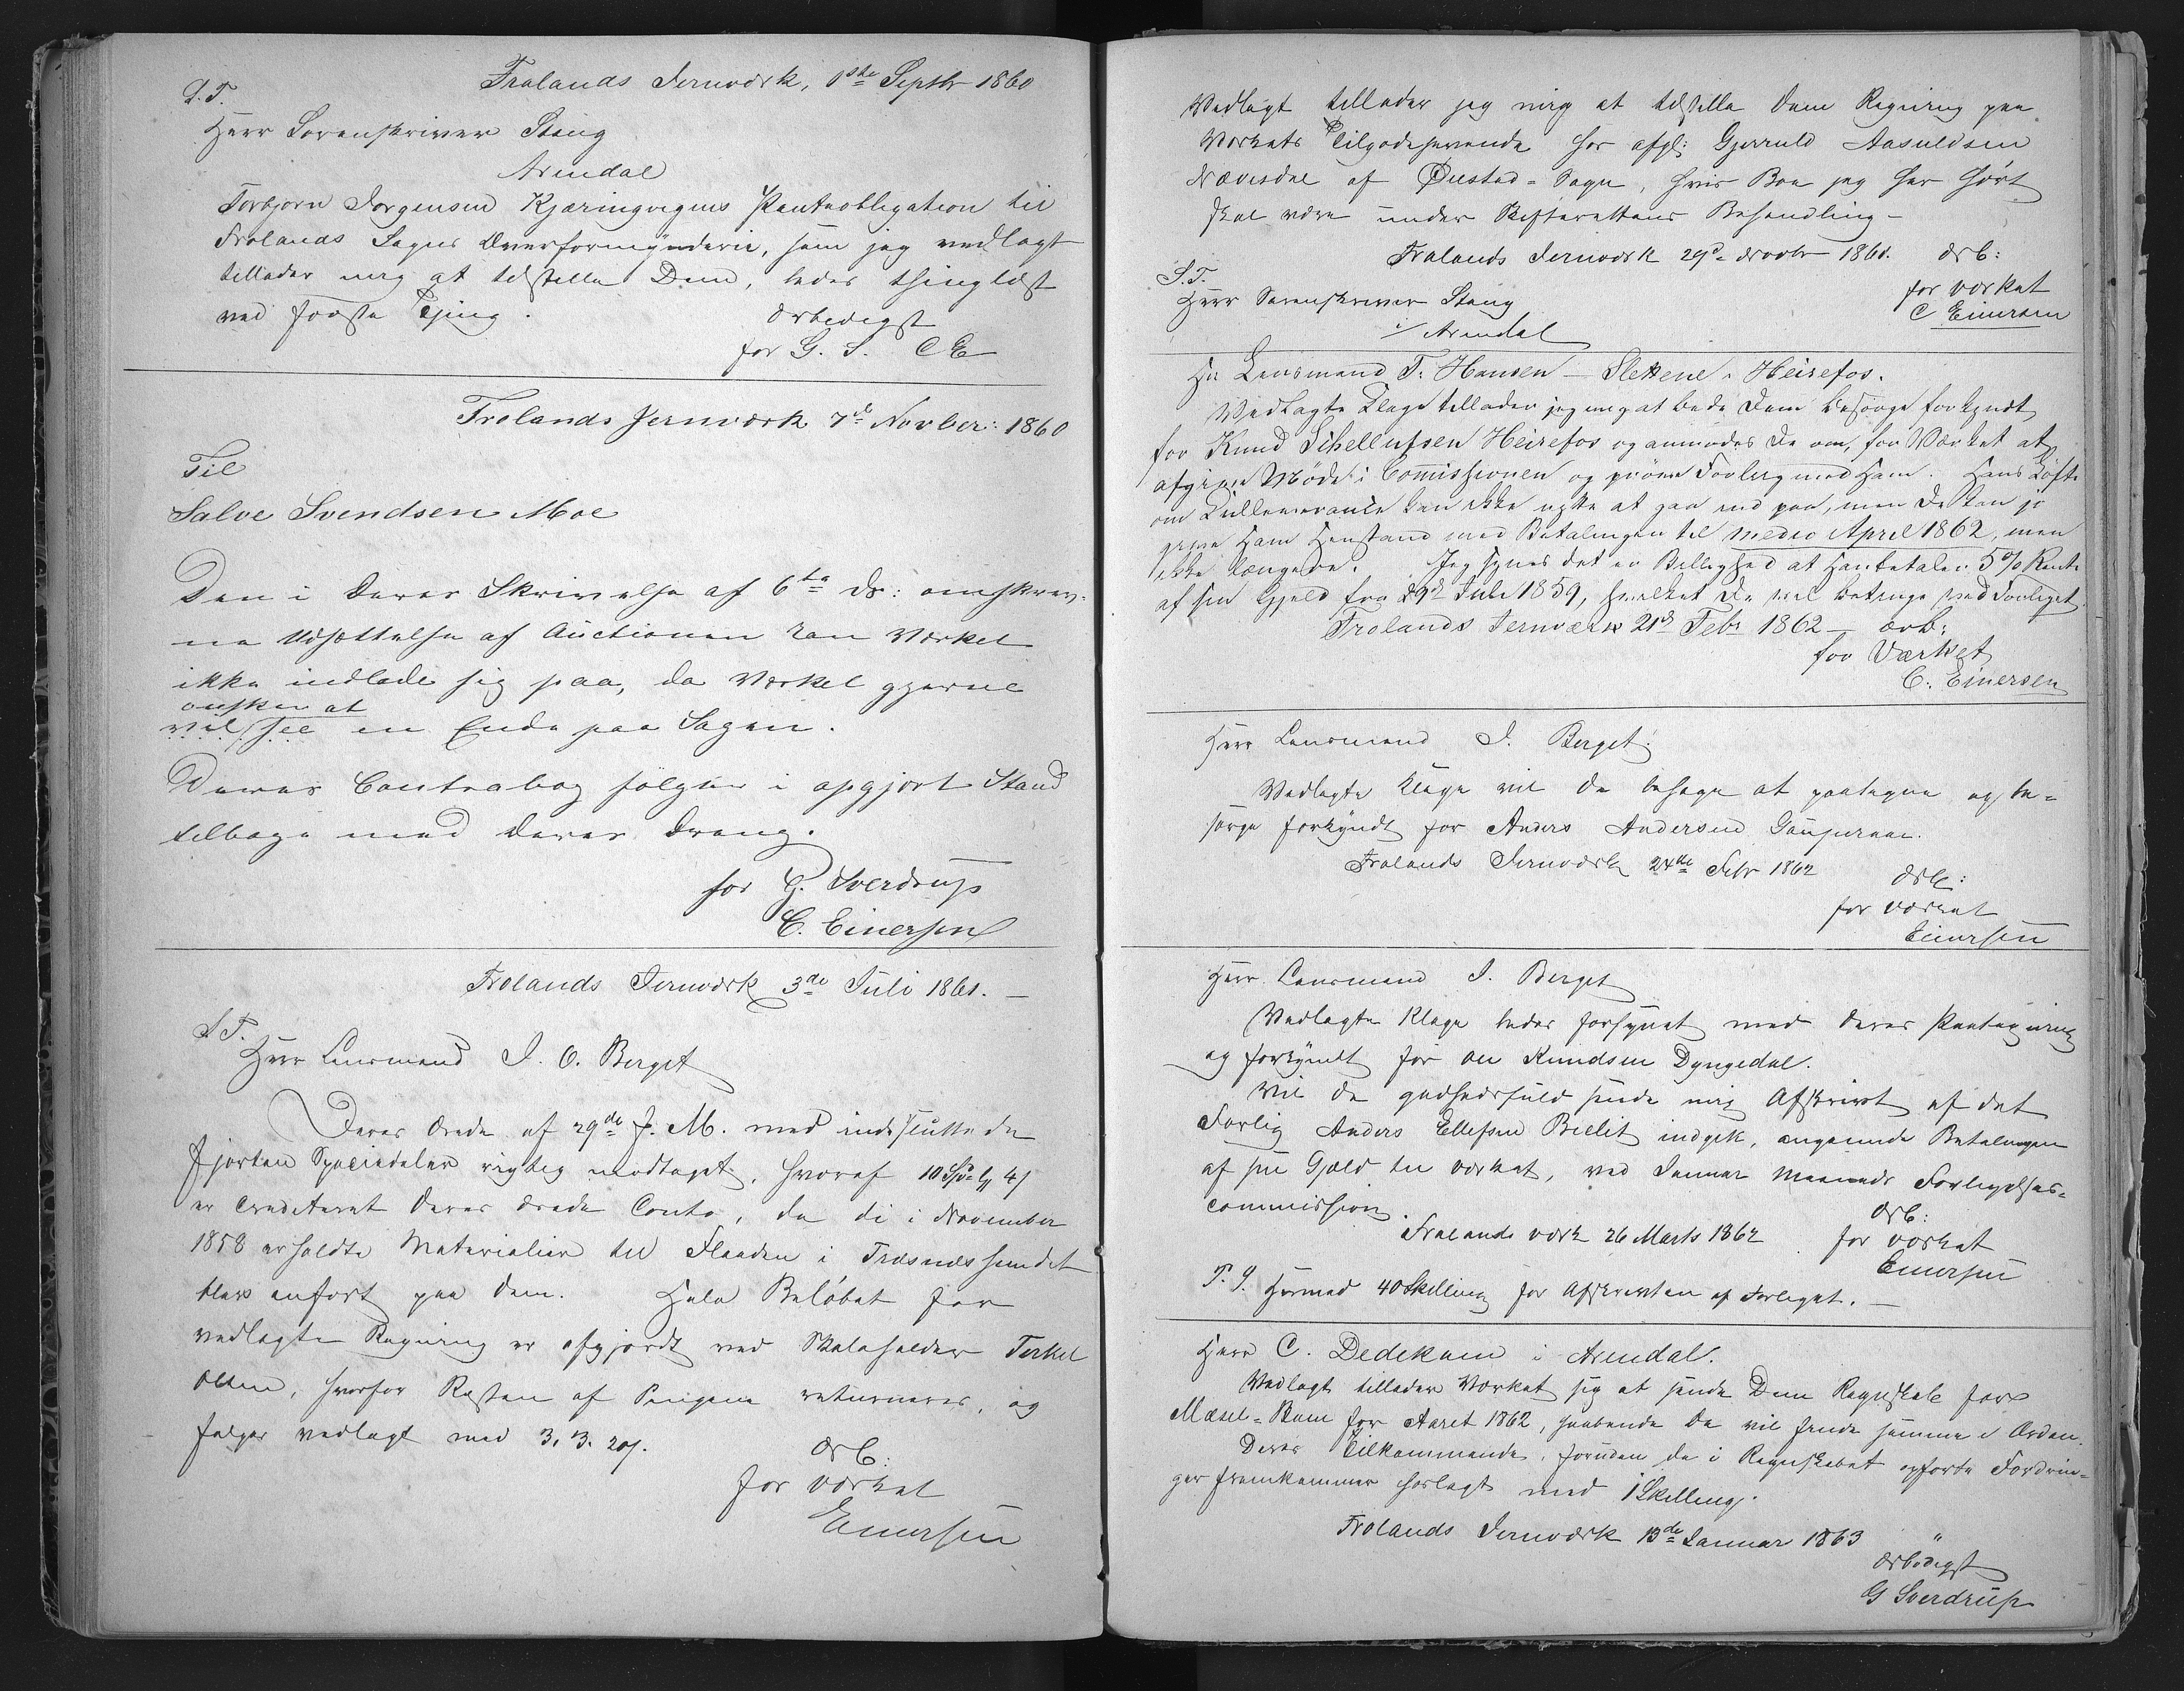 Frolands Jernværk, 1ste Septbr 1860
S.T.
Herr Sorenskriver Stang
Arendal
Torbjørn Jørgensen Kjæringvigens Panteobligation til
Frolands Sogns Overformynderie, som jeg vedlagt
tillader mig at tilstille Dem, bedes thinglæst
ved første Thing.
Ærbødigst
for G. S. CE
Frolands Jernværk 7de Novber: 1860
Til
Salve Svendsen Moe
Den i Deres Skrivelse af 6te ds: omskrev-
ne Udsættelse af Auctionen kan Værket
ikke indlade sig paa, da Værket gjerne
ønsker at
vil see en Ende paa Sagen.
Deres Contrabog følger i opgjort Stand
tilbage med Deres Dreng.
for G. Sverdrup
C. Einersen
Frolands Jernværk 3de Juli 1861. —
S.T.
Herr Lensmand J. O. Berget
Deres Ærede af 29de f. M. med indsluttede
fjorten Speciedaler rigtig modtaget, hvoraf 10 Spd 4
er crediteret Deres ærede Conto, da de i November
1858 erholdte Materialier til Flaaden i Træsnæssundet
blev anført paa Dem. Hele Beløbet for
vedlagte Regning er afgjordt ved Skoleholder Terkel
Olsen, hvorfor Resten af Pengene returneres, og
følger vedlagt med 3. 3. 20.
Ærb:
for Værket
Einersen
Vedlagt tillader jeg mig at tilstille Dem Regning paa
Værkets Tilgodehavende hos afgl: Gjeruld Aasuldsen
Nævisdal af Øiestad-Sogn, hvis Boe jeg har hørt
skal være under Skifterettens Behandling —
Frolands Jernværk 29de Novbr 1861. Ærb:
S.T.
for Værket
Herr Sorenskriver Stang
C Einersen
i/ Arendal
Hr Lensmand T. Hansen — Slettene, Heirefos.
Vedlagte Klage tillader jeg mig at bede Dem besørge forkyndt
for Knud Schellufsen Heirefos og anmodes De om, for Værket at
afgive Møde i Commissionen og prøve Forlig med Ham. Hans Løfte
om Kulleverance kan ikke nytte at gaa ind paa, men De kan jo
give Ham Henstand med Betalingen til medio April 1862, men
ikke længere. Jeg synes det er Billighed at Han betaler 5% Rente
af sin Gjeld fra 29de Juli 1859, hvilket De vil betinge ved Forliget.
Frolands Jernværk 21de Febr 1862 — ærb:
for Værket
C. Einersen
Herr Lensmand J. Berget.
Vedlagte Klage vil De behage at paategne og be-
sørge forkyndt for Anders Andersen
Frolands Jernværk 24de Febr 1862
Ærb:
for Værket
Einersen
Herr Lensmand J. Berget
Vedlagte Klage bedes forsynet med Deres Paategning
og forkyndt for Ole Knudsen Dyngedal.
Vil De godhedsfuld sende mig Afskrivt af det
Forlig Anders Ellefsen indgik, angaaende Betalingen
af sin Gjæld til Værket, ved Januar Maaneds Forligelses-
commission.
Ærb:
Frolands Værk 26 Marts 1862. for Værket
Einersen
P. S. Hermed 40 Skilling for Afskrivten af Forliget. —
Herr C. Dedekam i Arendal.
Vedlagt tillader Værket sig at sende Dem Regnskab for
Mæsel-Bom for Aaret 1862, haabende De vil finde samme i Orden.
Deres Tilkommende, foruden de i Regnskabet opførte Fordrin-
ger fremkommer herlagt med 1 Skilling.
Frolands Jernværk 13de Januar 1863
Ærbødigst
G Sverdrup